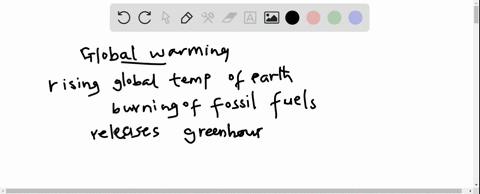 Global warming
rising global temp of earth
burning of fossil fuels
releases greenhour